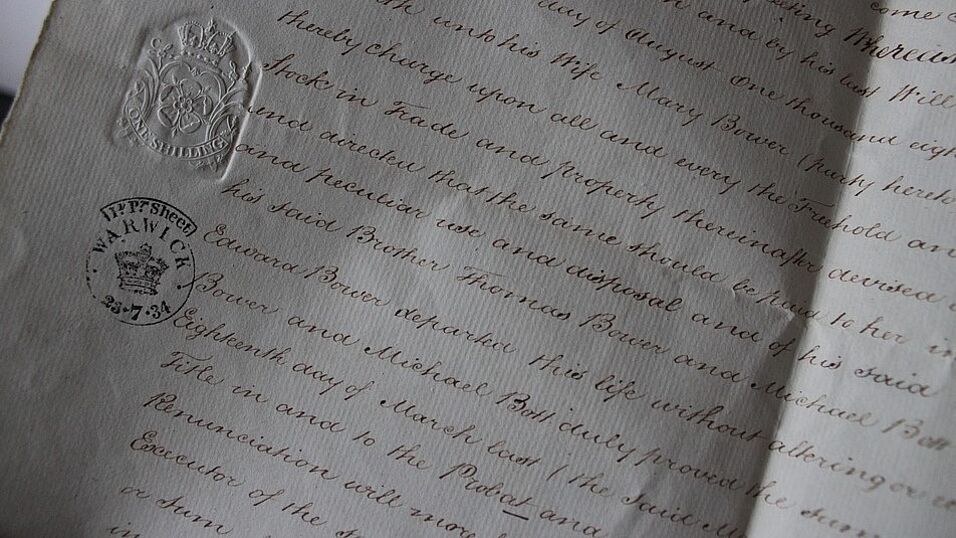 come
Whereas
and by his last Will
day of August One thousand eigh
unto his Wife Mary Bower (party hereto
thereby charge upon all and every the Freehold an
Stock in Trade and property thereinafter devised
and directed that the same should be paid to her in
and peculiar use and disposal and of his said
his said Brother Thomas Bower and Michael Bott
Edward Bower departed this life without altering or re
Bower and Michael Bott duly proved the
Eighteenth day of March last (the said M
Title in and to the Probat and
Renunciation will more
Executor of the s
or Sum
in
ONE SHILLING
Sheet
WARWICK
23·7·34